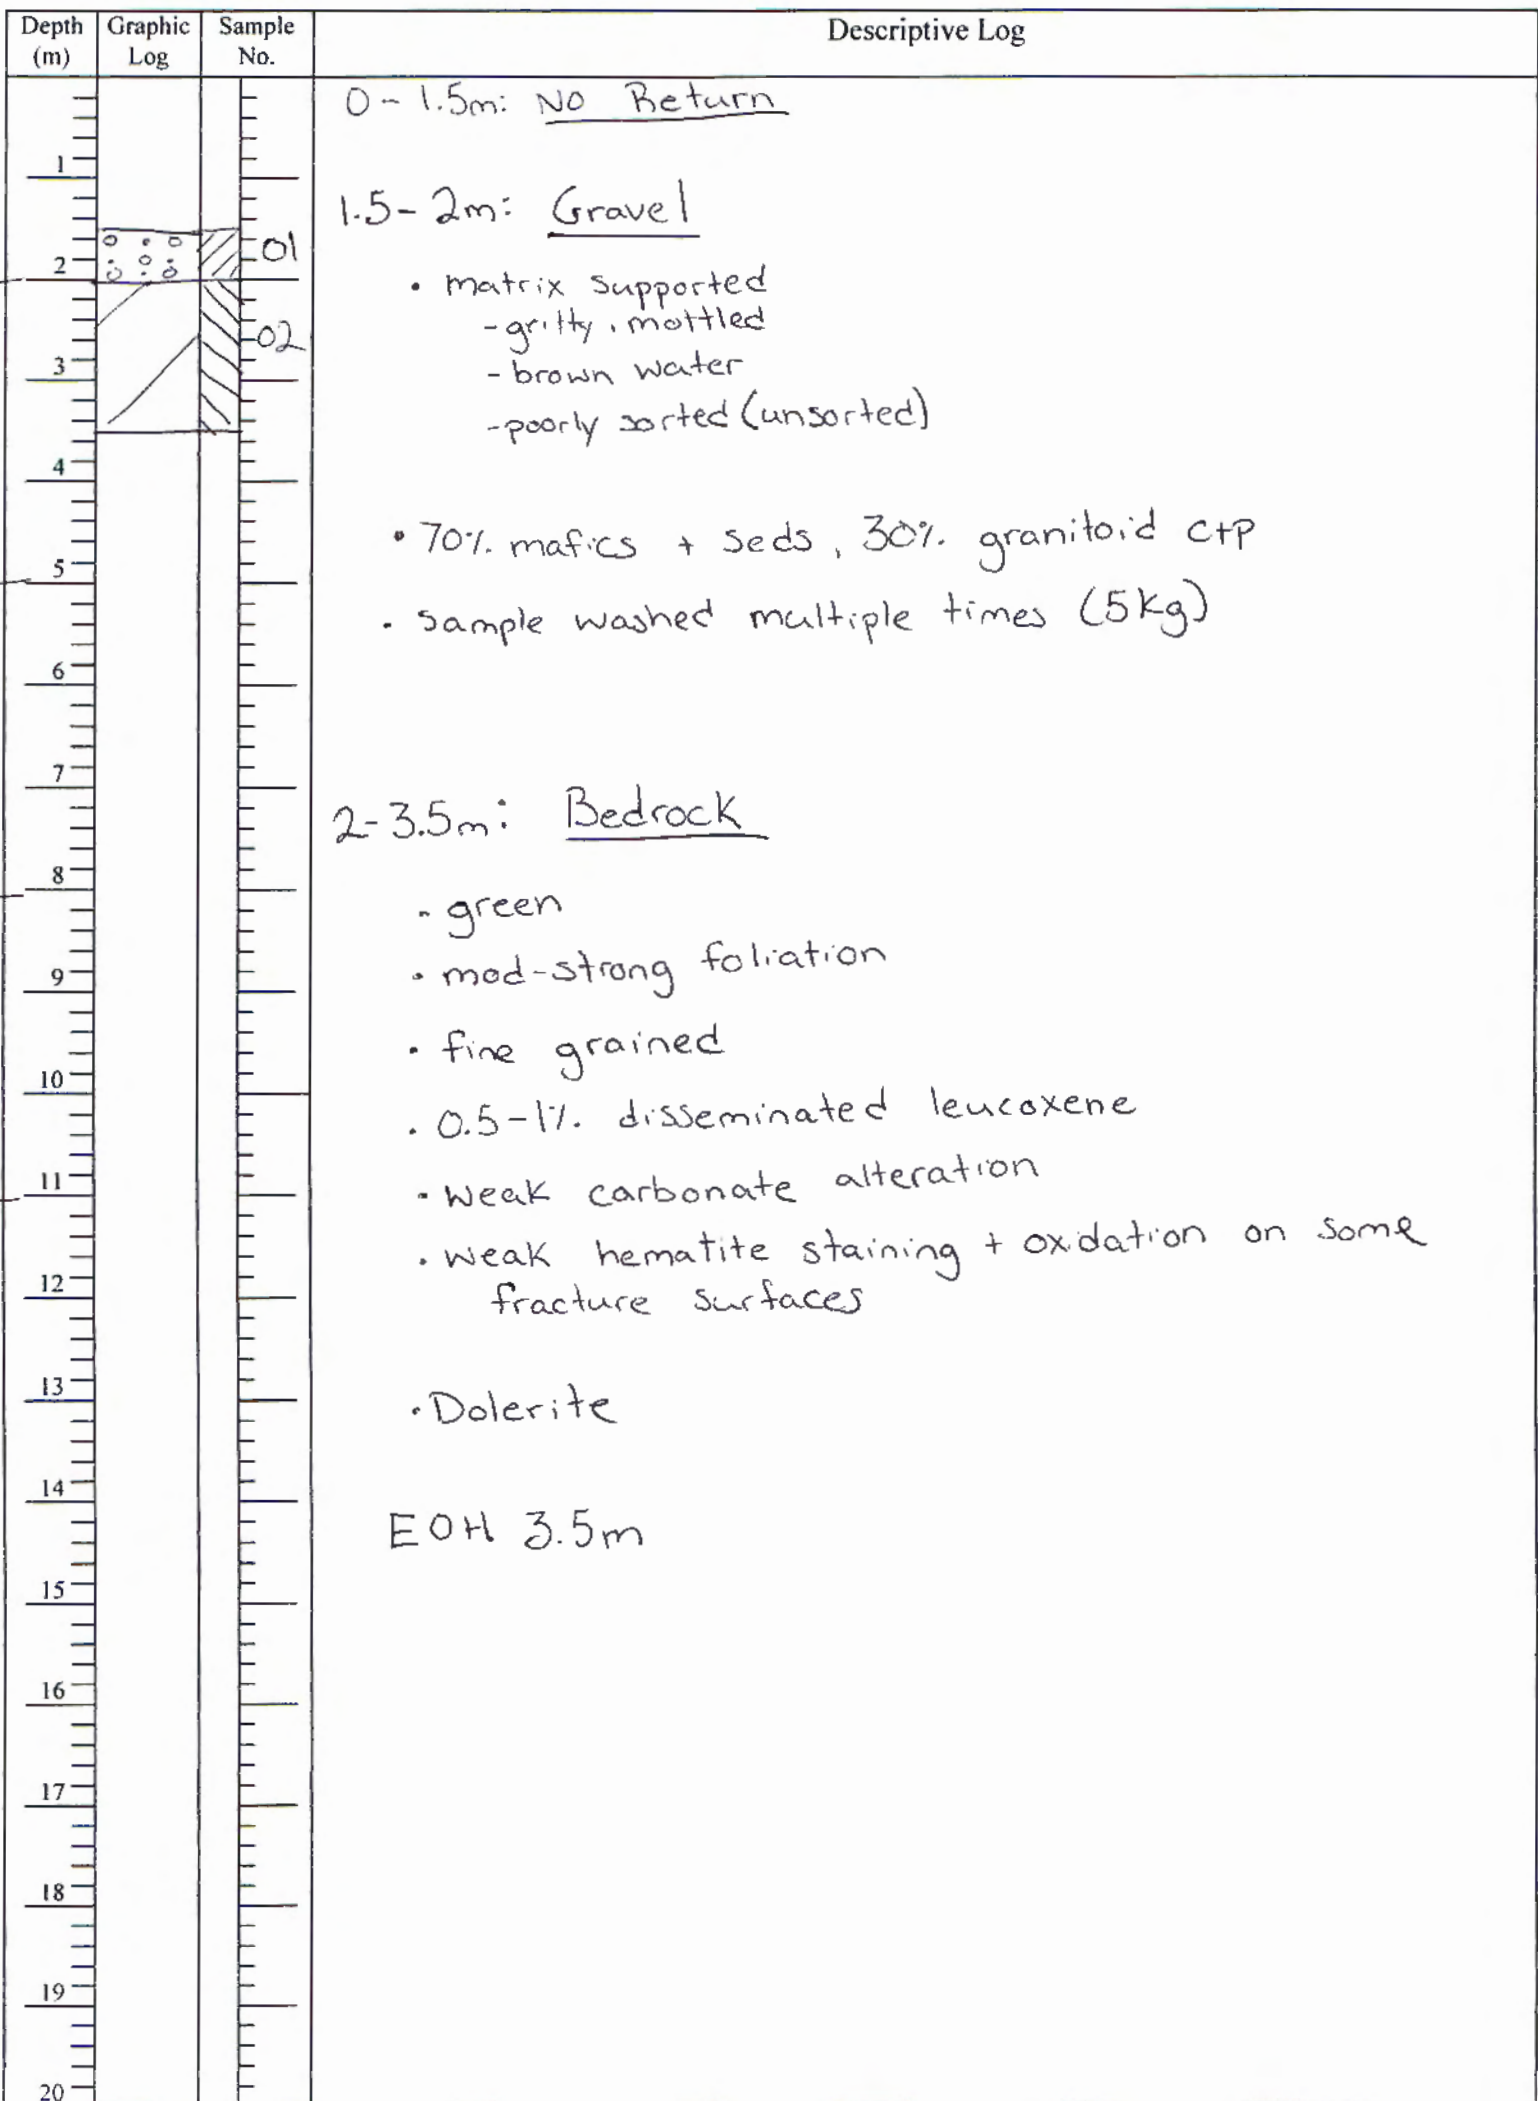 Depth (m) Graphic Log Sample No. Descriptive Log
0-1.5m: No Return
1
1.5-2m: Gravel
01
2
• matrix supported
-gritty, mottled
02
3
-brown water
-poorly sorted (unsorted)
4
• 70% mafics + seds, 30% granitoid ctp
5
• sample washed multiple times (5kg)
6
7
2-3.5m: Bedrock
8
• green
9
• mod-strong foliation
• fine grained
10
• 0.5-1% disseminated leucoxene
11
• weak carbonate alteration
• weak hematite staining + oxidation on some
12
fracture surfaces
13
• Dolerite
14
EOH 3.5m
15
16
17
18
19
20